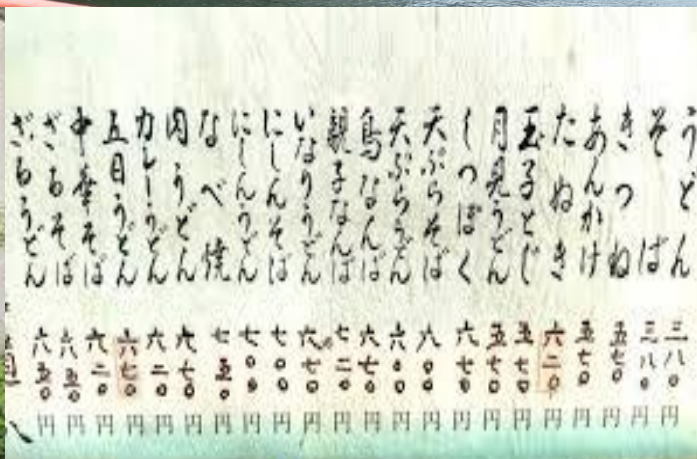 うどん 三八〇円
そば 三八〇円
きつね 五七〇円
あんかけ 五七〇円
たぬき 六二〇円
玉子とじ 五七〇円
月見うどん 五七〇円
しっぽく 六七〇円
天ぷらそば 八〇〇円
天ぷらうどん 円
鳥なんば 六七〇円
親子なんば 七二〇円
いなりうどん 六七〇円
にしんそば 七〇〇円
にしんうどん 七〇〇円
なべ焼 七五〇円
肉うどん 六七〇円
カレーうどん 六二〇円
五目うどん 六七〇円
中華そば 六二〇円
ざるそば 六五〇円
ざるうどん 六五〇円